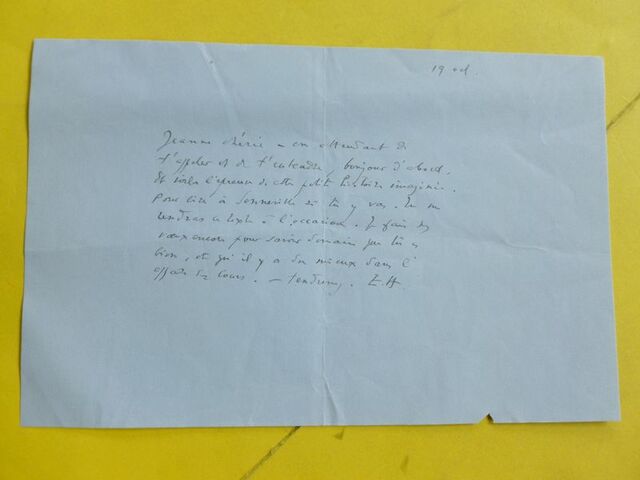 19 oct.
Jeanne chérie – en attendant de
t'appeler et de t'entendre, bonjour d'abord.
Et voilà l'épreuve de cette petite histoire imaginée.
Pour lire à Senneville si tu y vas. Tu me
rendras ce texte à l'occasion. Je fais des
vœux encore pour savoir demain que tu es
bien, et qu'il y a du mieux dans l'
affaire de cours. – tendrement. E.H.